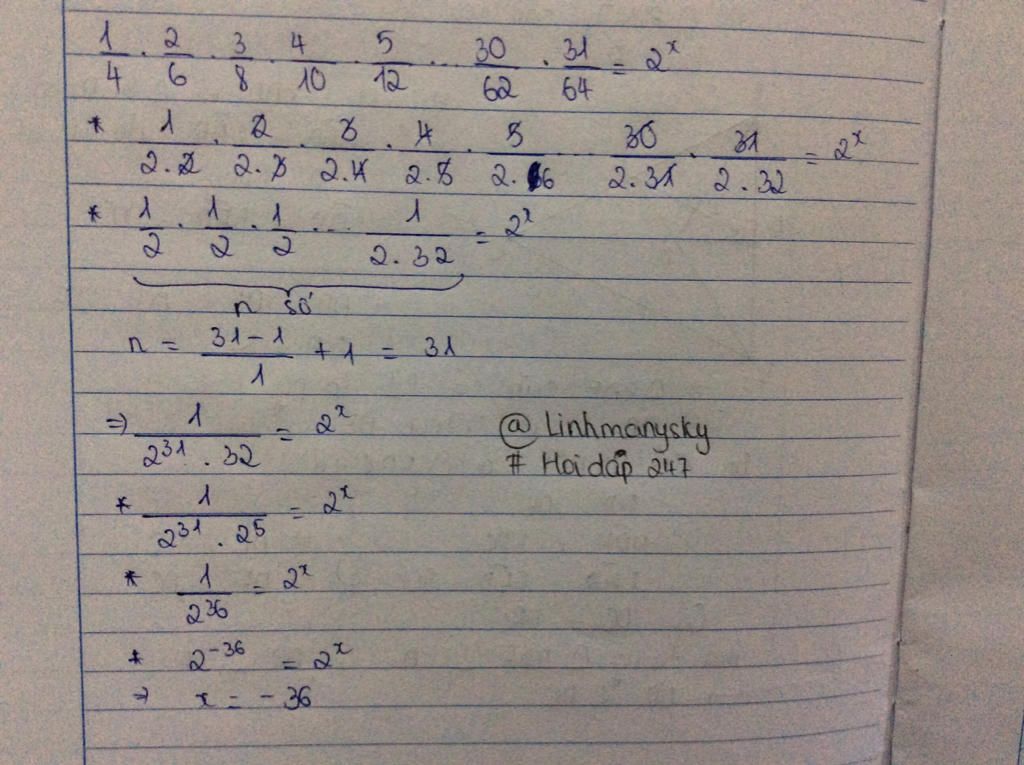 1/4 . 2/6 . 3/8 . 4/10 . 5/12 ... 30/62 . 31/64 = 2^x
* 1/2.2 . 2/2.3 . 3/2.4 . 4/2.5 . 5/2.6 ... 30/2.31 . 31/2.32 = 2^x
* 1/2 . 1/2 . 1/2 ... 1/2.32 = 2^x
n số
n = 31-1/1 + 1 = 31
=> 1/2^31 . 32 = 2^x
@ Linhmanysky
# Hoidáp 247
* 1/2^31 . 2^5 = 2^x
* 1/2^36 = 2^x
* 2^-36 = 2^x
=> x = -36